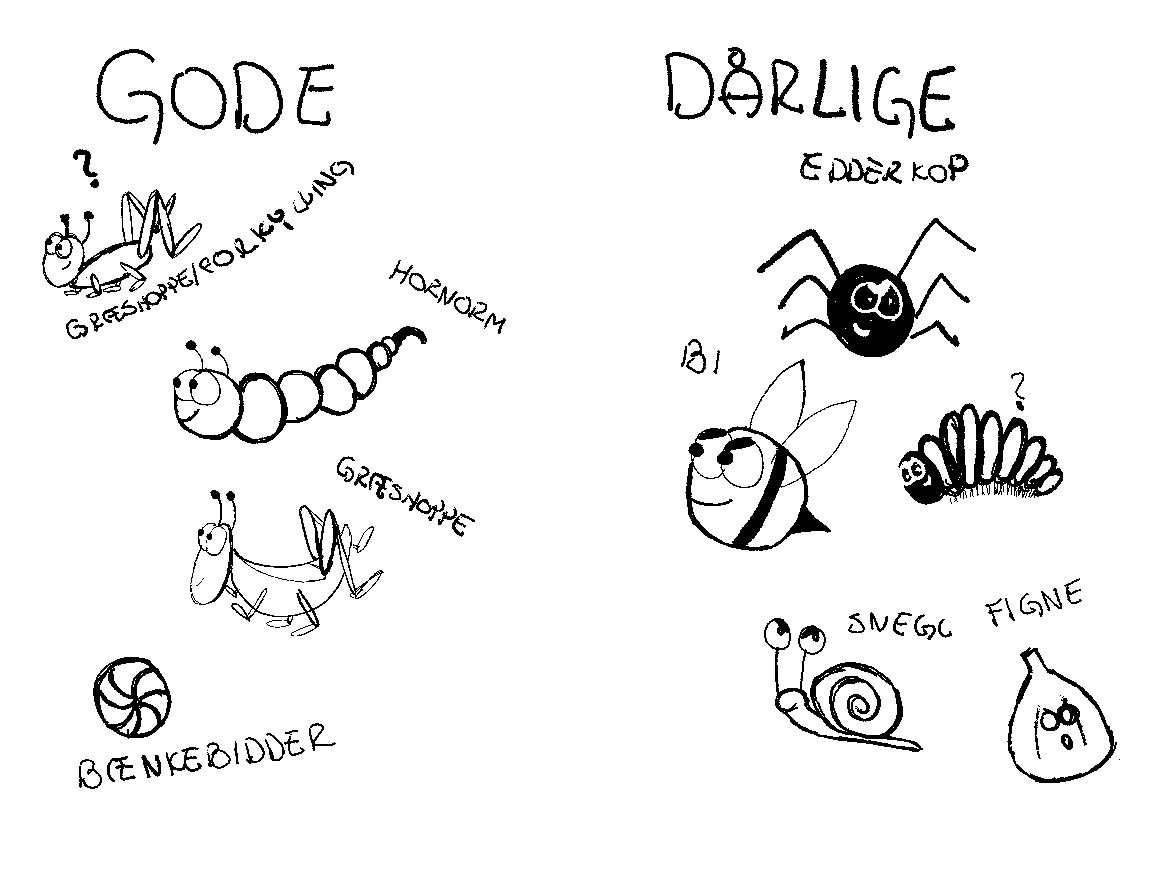 GODE
?
GRÆSHOPPE/FORKYLLING
HORNORM
GRÆSHOPPE
BÆNKEBIDDER
DÅRLIGE
EDDERKOP
BI
?
SNEGL
FIGNE